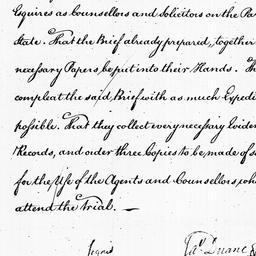 Esquires as Counsellors and Solicitors on the Pa
State. That the Brief already prepared, together
necessary Papers, be put into their Hands. Th
compleat the said Brief with as much Expedi
possible. That they collect every necessary Eviden
Records, and order three Copies to be made of s
for the Use of the Agents and Counsellors, who
attend the Trial. —
Signed
Jas. Duane &